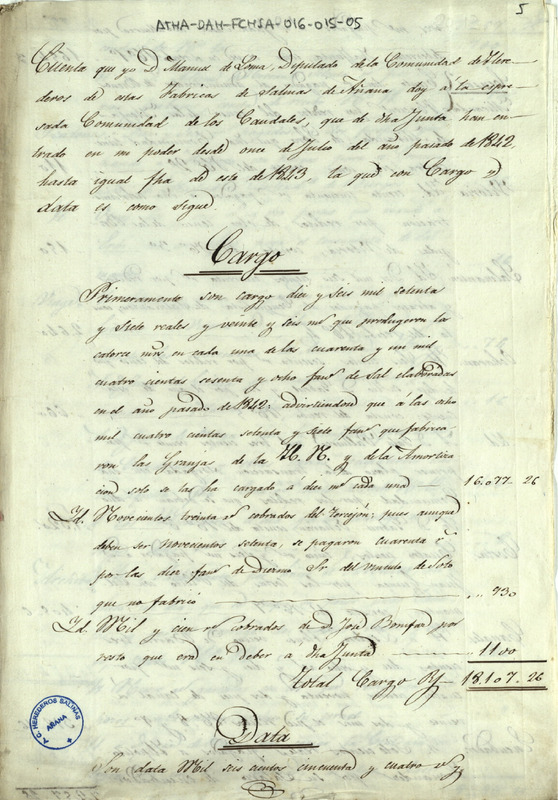 ATHA-DAH-FCHSA-016-015-05
5
Cuenta que yo D. Manuel de Loma, Deputado de la Comunidad de Here-
deros de estas Fabricas de Salinas de Añana doy á la espre-
sada Comunidad de los Caudales, que de dha Junta han en-
trado en mi poder desde once de Julio del año pasado de 1842,
hasta igual fha de este de 1843, la que con Cargo y
data es como sigue.
Cargo
Primeramente son cargo diez y seis mil setenta
y siete reales y veinte y seis mrs que produgeron la
catorce mrs en cada una de las cuarenta y un mil
cuatro cientas sesenta y ocho fans de Sal elaboradas
en el año pasado de 1842; advirtiendo que a las ocho
mil cuatro cientas setenta y siete fans que fabrica-
ron las Granjas de la H. N. y de la Amortiza
cion solo se las ha cargado á diez ms cada una
16.077. 26
Id. Novecientos treinta rs cobrados del torrejón; pues aunque
deben ser Novecientos setenta, se pagaron cuarenta
por las diez fans de Diezmo Sr del vinculo de Soto
que no fabricó
930
Id. Mil y cien rs cobrados de D. José Bonifaz por
resto que era en deber á dha Junta
1100
Total Cargo Rs
18.107. 26
A. C. HEREDEROS SALINAS
AÑANA
Data
Son data Mil seis cientos cincuenta y cuatro rs y